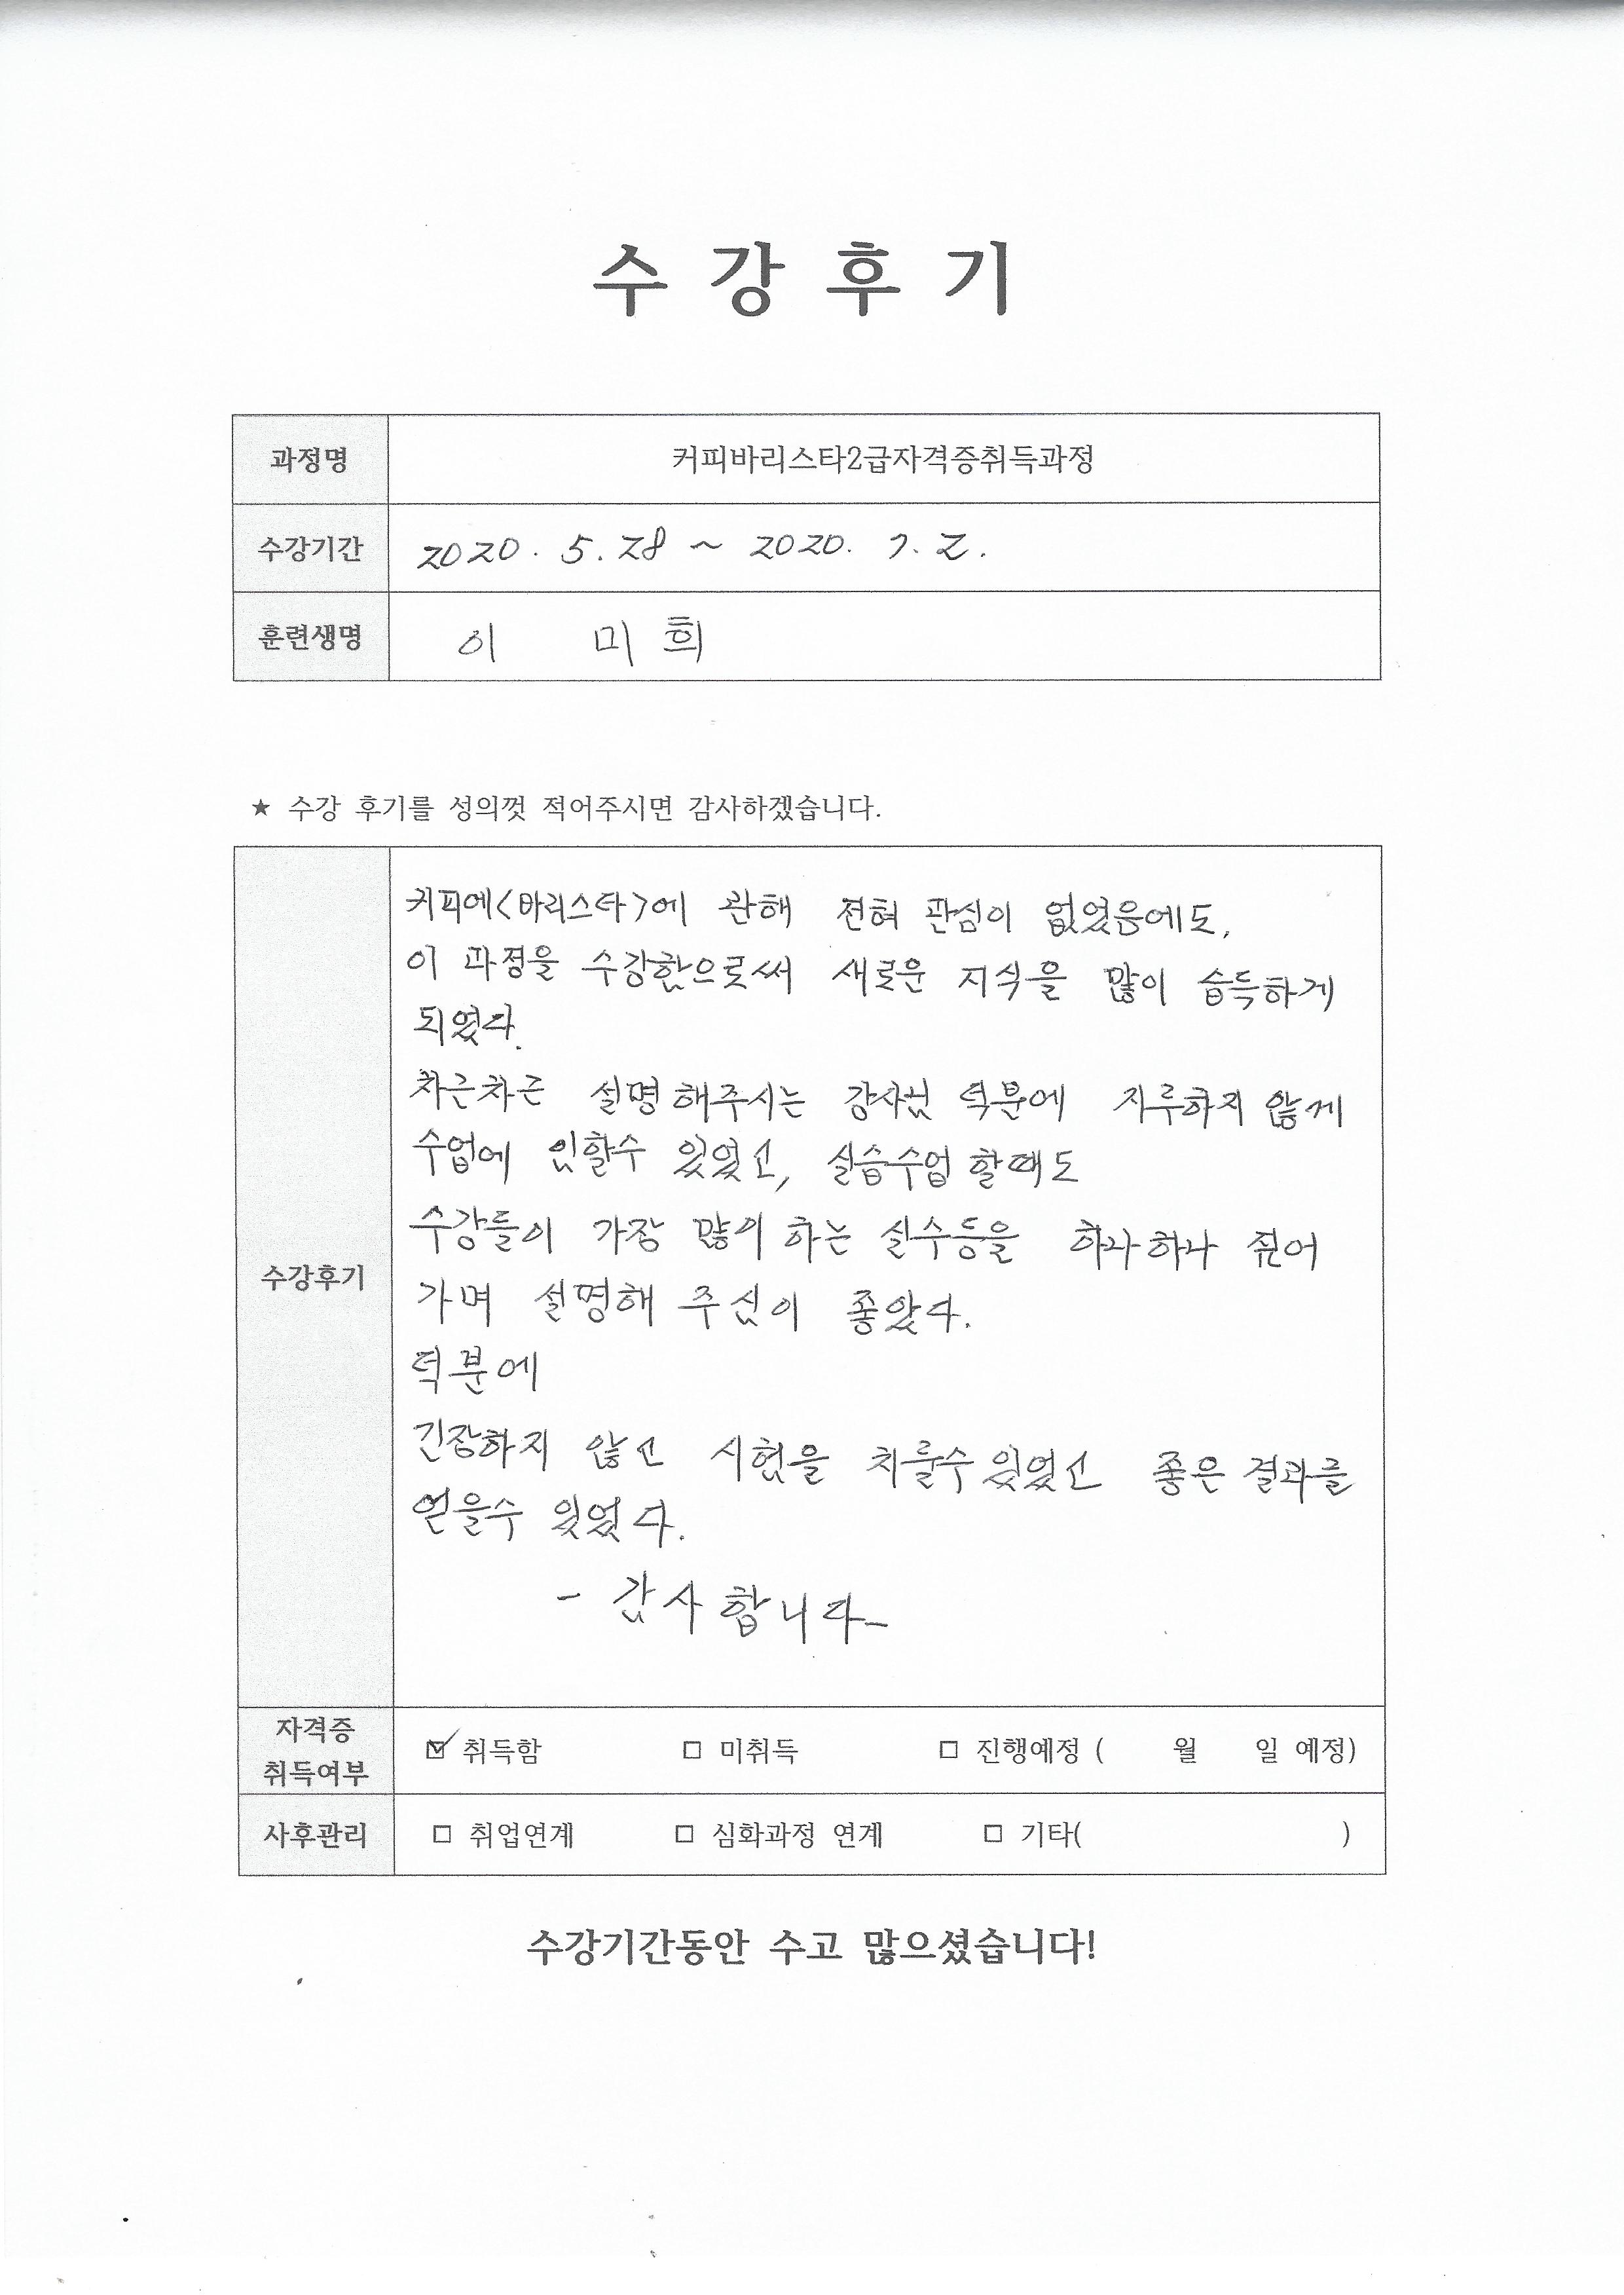 수 강 후 기
과정명 커피바리스타2급자격증취득과정
수강기간 2020. 5. 28 ~ 2020. 7. 2.
훈련생명 이 미 희
★ 수강 후기를 성의껏 적어주시면 감사하겠습니다.
수강후기
커피에<바리스타>에 관해 전혀 관심이 없었음에도,
이 과정을 수강함으로써 새로운 지식을 많이 습득하게
되었다.
차근차근 설명해주시는 강사님 덕분에 지루하지 않게
수업에 임할수 있었고, 실습수업 할때도
수강들이 가장 많이 하는 실수등을 하나하나 짚어
가며 설명해 주심이 좋았다.
덕분에
긴장하지 않고 시험을 치룰수 있었고 좋은 결과를
얻을수 있었다.
- 감사합니다-
자격증
취득여부 ☑ 취득함 □ 미취득 □ 진행예정 ( 월 일 예정)
사후관리 □ 취업연계 □ 심화과정 연계 □ 기타( )
수강기간동안 수고 많으셨습니다!